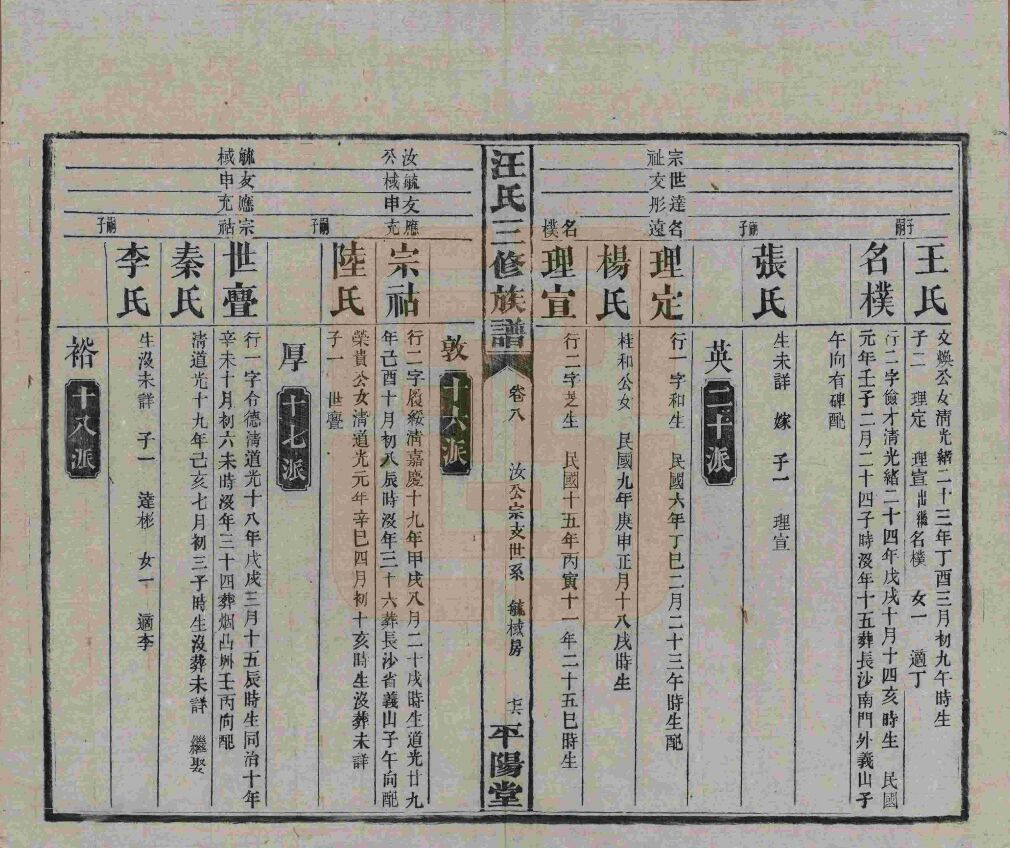 子嗣
王氏
文煥公女清光緒二十三年丁酉三月初九午時生
子二 理定 理宣出繼名樸 女一 適丁
名樸
行二字儉才清光緒二十四年戊戌十月十四亥時生 民國
元年壬子二月二十四子時沒年十五葬長沙南門外義山子
午向有碑配
子嗣
張氏
生未詳 嫁 子一 理宣
英
二十派
宗世達名
祉文彤遠
理定
行一字和生 民國六年丁巳二月二十三午時生配
楊氏
桂和公女 民國九年庚申正月十八戌時生
名樸
理宣
行二字芝生 民國十五年丙寅十一年二十五巳時生
汪氏三修族譜
卷八
汝公宗支世系 毓棫房
平陽堂
敦
十六派
汝毓友應
公棫申充
宗祜
行二字履綏清嘉慶十九年甲戌八月二十戌時生道光廿九
年己酉十月初八辰時沒年三十六葬長沙省義山子午向配
子嗣
陸氏
榮貴公女清道光元年辛巳四月初十亥時生沒葬未詳
子一 世疊
厚
十七派
毓友應宗
棫申充祜
世疊
行一字合德清道光十八年戊戌三月十五辰時生同治十年
辛未十月初六未時沒年三十四葬烟凸興壬丙向配
秦氏
清道光十九年己亥七月初三子時生沒葬未詳 繼娶
子嗣
李氏
生沒未詳 子一 達彬 女一 適李
裕
十八派